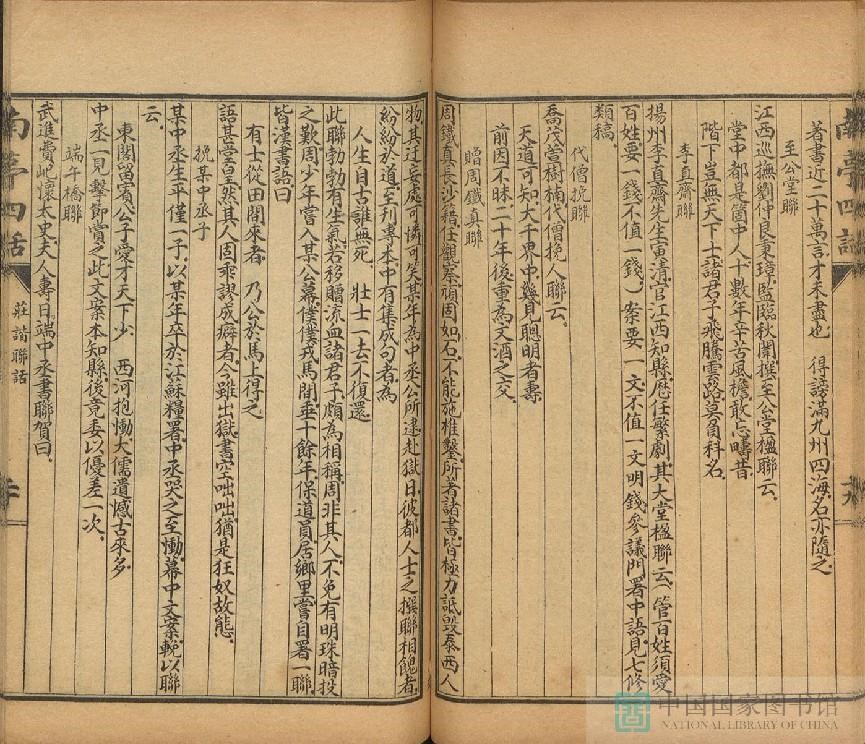 著書近二十萬言才未盡也　得謗滿九州四海名亦隨之
至公堂聯
江西巡撫劉仲良秉璋監臨秋闈撰至公堂楹聯云
堂中都是箇中人十數年辛苦風檐敢忘疇昔
階下豈無天下士諸君子飛騰雲路莫負科名
李直齋聯
揚州李直齋先生寅清官江西知縣歷任繁劇其大堂楹聯云管百姓須愛
百姓要一錢不值一錢案要一文不值一文明錢參議門署中語見七修
類稿
代僧挽聯
喬茂萱樹楠代僧挽人聯云
天道可知大千界中幾見聰明者壽
前因不昧二十年後重為文酒之交
贈周鐵真聯
周鐵真長沙籍任觀察頑固如石不能施椎鑿所著諸書皆極力詆毀泰西人
物其迂妄處可憐可笑某年為中丞公所逮赴獄日彼都人士之撰聯相餽者
紛紛於道至刊專本中有集成句者為
人生自古誰無死　壯士一去不復還
此聯勃勃有生氣若移贈流血諸君子頗為相稱周非其人不免有明珠暗投
之歎周少年嘗入某公幕僕僕戎馬間垂十餘年保道員居鄉里嘗自署一聯
皆漢書語曰
有士從田間來者　乃公於馬上得之
語甚堂皇然其人固乖謬成癖者今雖出獄書空咄咄猶是狂奴故態
挽某中丞子
某中丞生平僅一子以某年卒於江蘇糧署中丞哭之至慟幕中文案輓以聯
云
東閣留賓公子愛才天下少　西河抱慟大儒遺憾古來多
中丞一見擊節賞之此文案本知縣後竟委以優差一次
端午橋聯
武進費屺懷太史夫人壽日端中丞書聯賀曰
南亭四話
莊諧聯話
中国国家图书馆
NATIONAL LIBRARY OF CHINA